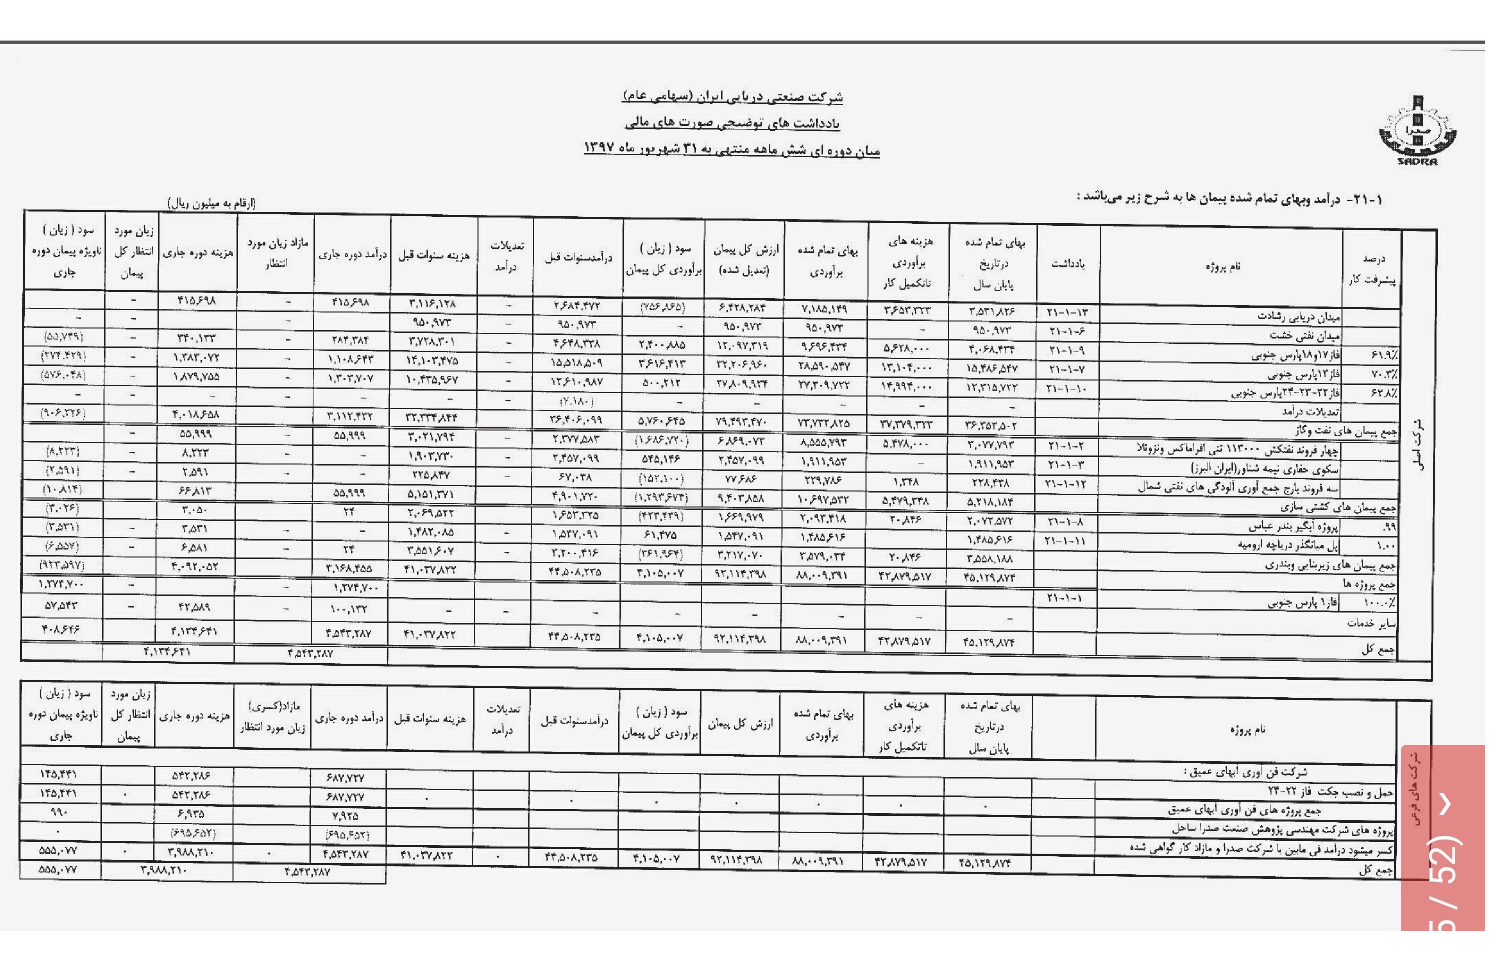 شرکت صنعتی دریایی ایران (سهامی عام)
یادداشت های توضیحی صورت های مالی
میان دوره ای شش ماهه منتهی به ۳۱ شهریور ماه ۱۳۹۷
صدرا
SADRA
۲۱-۱- درآمد وبهای تمام شده پیمان ها به شرح زیر می‌باشد :
(ارقام به میلیون ریال)
درصد پیشرفت کار
نام پروژه
یادداشت
بهای تمام شده درتاریخ پایان سال
هزینه های برآوردی تاتکمیل کار
بهای تمام شده برآوردی
ارزش کل پیمان (تعدیل شده)
سود ( زیان ) برآوردی کل پیمان
درآمدسنوات قبل
تعدیلات درآمد
هزینه سنوات قبل
درآمد دوره جاری
مازاد زیان مورد انتظار
هزینه دوره جاری
زیان مورد انتظار کل پیمان
سود ( زیان ) ناویژه پیمان دوره جاری
شرکت اصلی
میدان دریایی رشادت ۲۱-۱-۱۳ ۳,۵۳۱,۸۲۶ ۳,۶۵۳,۳۲۳ ۷,۱۸۵,۱۴۹ ۶,۴۲۸,۲۸۴ (۷۵۶,۸۶۵) ۲,۶۸۴,۴۷۲ – ۳,۱۱۶,۱۲۸ ۴۱۵,۶۹۸ – ۴۱۵,۶۹۸ –
میدان نفتی خشت ۲۱-۱-۶ ۹۵۰,۹۷۳ – ۹۵۰,۹۷۳ ۹۵۰,۹۷۳ – ۹۵۰,۹۷۳ – ۹۵۰,۹۷۳ – – – – –
۶۱.۹٪ فاز۱۷و۱۸پارس جنوبی ۲۱-۱-۹ ۴,۰۶۸,۴۳۴ ۵,۶۲۸,۰۰۰ ۹,۶۹۶,۴۳۴ ۱۲,۰۹۷,۳۱۹ ۲,۴۰۰,۸۸۵ ۴,۶۴۸,۳۲۸ – ۳,۷۲۸,۳۰۱ ۲۸۴,۳۸۴ – ۳۴۰,۱۳۳ – (۵۵,۷۴۹)
۷۰.۳٪ فاز۱۳پارس جنوبی ۲۱-۱-۷ ۱۵,۴۸۶,۵۴۷ ۱۳,۱۰۴,۰۰۰ ۲۸,۵۹۰,۵۴۷ ۳۲,۲۰۶,۹۶۰ ۳,۶۱۶,۴۱۳ ۱۵,۵۱۸,۵۰۹ – ۱۴,۱۰۳,۴۷۵ ۱,۱۰۸,۶۴۳ – ۱,۳۸۳,۰۷۲ – (۲۷۴,۴۲۹)
۶۲.۸٪ فاز۲۲-۲۳-۲۴پارس جنوبی ۲۱-۱-۱۰ ۱۲,۳۱۵,۷۲۲ ۱۴,۹۹۴,۰۰۰ ۲۷,۳۰۹,۷۲۲ ۲۷,۸۰۹,۹۳۴ ۵۰۰,۲۱۲ ۱۲,۶۱۰,۹۸۷ – ۱۰,۴۳۵,۹۶۷ ۱,۳۰۳,۷۰۷ – ۱,۸۷۹,۷۵۵ – (۵۷۶,۰۴۸)
تعدیلات درآمد – – – – – (۷,۱۸۰) – – – – – – –
جمع پیمان های نفت وگاز ۳۶,۳۵۳,۵۰۲ ۳۷,۳۷۹,۳۲۳ ۷۳,۷۳۲,۸۲۵ ۷۹,۴۹۳,۴۷۰ ۵,۷۶۰,۶۴۵ ۳۶,۴۰۶,۰۹۹ ۳۲,۳۳۴,۸۴۴ ۳,۱۱۲,۴۳۲ ۴,۰۱۸,۶۵۸ (۹۰۶,۲۲۶)
چهار فروند نفتکش ۱۱۳۰۰۰ تنی افراماکس ونزوئلا ۲۱-۱-۲ ۳,۰۷۷,۷۹۳ ۵,۴۷۸,۰۰۰ ۸,۵۵۵,۷۹۳ ۶,۸۶۹,۰۷۳ (۱,۶۸۶,۷۲۰) ۲,۳۷۷,۵۸۳ – ۳,۰۲۱,۷۹۴ ۵۵,۹۹۹ – ۵۵,۹۹۹ –
سکوی حفاری نیمه شناور(ایران البرز) ۲۱-۱-۳ ۱,۹۱۱,۹۵۳ – ۱,۹۱۱,۹۵۳ ۲,۴۵۷,۰۹۹ ۵۴۵,۱۴۶ ۲,۴۵۷,۰۹۹ – ۱,۹۰۳,۷۳۰ – – ۸,۲۲۳ – (۸,۲۲۳)
سه فروند بارج جمع آوری آلودگی های نفتی شمال ۲۱-۱-۱۲ ۲۲۸,۴۳۸ ۱,۳۴۸ ۲۲۹,۷۸۶ ۷۷,۶۸۶ (۱۵۲,۱۰۰) ۶۷,۰۳۸ – ۲۲۵,۸۴۷ – – ۲,۵۹۱ – (۲,۵۹۱)
جمع پیمان های کشتی سازی ۵,۲۱۸,۱۸۴ ۵,۴۷۹,۳۴۸ ۱۰,۶۹۷,۵۳۲ ۹,۴۰۳,۸۵۸ (۱,۲۹۳,۶۷۴) ۴,۹۰۱,۷۲۰ ۵,۱۵۱,۳۷۱ ۵۵,۹۹۹ ۶۶,۸۱۳ (۱۰,۸۱۴)
۹۹. پروژه آبگیر بندر عباس ۲۱-۱-۸ ۲,۰۷۲,۵۷۲ ۲۰,۸۴۶ ۲,۰۹۳,۴۱۸ ۱,۶۶۹,۹۷۹ (۴۲۳,۴۳۹) ۱,۶۵۳,۳۲۵ – ۲,۰۶۹,۵۲۲ ۲۴ – ۳,۰۵۰ – (۳,۰۲۶)
۱.۰۰ پل میانگذر دریاچه ارومیه ۲۱-۱-۱۱ ۱,۴۸۵,۶۱۶ ۱,۴۸۵,۶۱۶ ۱,۵۴۷,۰۹۱ ۶۱,۴۷۵ ۱,۵۴۷,۰۹۱ – ۱,۴۸۲,۰۸۵ – – ۳,۵۳۱ – (۳,۵۳۱)
جمع پیمان های زیربنایی وبندری ۳,۵۵۸,۱۸۸ ۲۰,۸۴۶ ۳,۵۷۹,۰۳۴ ۳,۲۱۷,۰۷۰ (۳۶۱,۹۶۴) ۳,۲۰۰,۴۱۶ – ۳,۵۵۱,۶۰۷ ۲۴ – ۶,۵۸۱ – (۶,۵۵۷)
جمع پروژه ها ۴۵,۱۲۹,۸۷۴ ۴۲,۸۷۹,۵۱۷ ۸۸,۰۰۹,۳۹۱ ۹۲,۱۱۴,۳۹۸ ۴,۱۰۵,۰۰۷ ۴۴,۵۰۸,۲۳۵ ۴۱,۰۳۷,۸۲۲ ۳,۱۶۸,۴۵۵ ۴,۰۹۲,۰۵۲ (۹۲۳,۵۹۷)
۱۰۰.۰٪ فاز۱ پارس جنوبی ۲۱-۱-۱ ۱,۲۷۴,۷۰۰ – – ۱,۲۷۴,۷۰۰
سایر خدمات – – – – – – – – ۱۰۰,۱۳۲ – ۴۲,۵۸۹ – ۵۷,۵۴۳
جمع کل ۴۵,۱۲۹,۸۷۴ ۴۲,۸۷۹,۵۱۷ ۸۸,۰۰۹,۳۹۱ ۹۲,۱۱۴,۳۹۸ ۴,۱۰۵,۰۰۷ ۴۴,۵۰۸,۲۳۵ ۴۱,۰۳۷,۸۲۲ ۴,۵۴۳,۲۸۷ ۴,۱۳۴,۶۴۱ ۴۰۸,۶۴۶
۴,۵۴۳,۲۸۷ ۴,۱۳۴,۶۴۱
نام پروژه
بهای تمام شده درتاریخ پایان سال
هزینه های برآوردی تاتکمیل کار
بهای تمام شده برآوردی
ارزش کل پیمان
سود ( زیان ) برآوردی کل پیمان
درآمدسنوات قبل
تعدیلات درآمد
هزینه سنوات قبل
درآمد دوره جاری
مازاد(کسری) زیان مورد انتظار
هزینه دوره جاری
زیان مورد انتظار کل پیمان
سود ( زیان ) ناویژه پیمان دوره جاری
شرکت های فرعی
شرکت فن آوری آبهای عمیق :
حمل و نصب جکت فاز ۲۲-۲۴ ۶۸۷,۷۲۷ ۵۴۲,۲۸۶ ۱۴۵,۴۴۱
جمع پروژه های فن آوری آبهای عمیق ۰ ۰ ۰ ۰ ۰ ۰ ۰ ۶۸۷,۷۲۷ ۵۴۲,۲۸۶ ۰ ۱۴۵,۴۴۱
پروژه های شرکت مهندسی پژوهش صنعت صدرا ساحل ۷,۹۲۵ ۶,۹۳۵ ۹۹۰
کسر میشود درآمد فی مابین با شرکت صدرا و مازاد کار گواهی شده (۶۹۵,۶۵۲) (۶۹۵,۶۵۲) ۰
جمع کل ۴۵,۱۲۹,۸۷۴ ۴۲,۸۷۹,۵۱۷ ۸۸,۰۰۹,۳۹۱ ۹۲,۱۱۴,۳۹۸ ۴,۱۰۵,۰۰۷ ۴۴,۵۰۸,۲۳۵ ۰ ۴۱,۰۳۷,۸۲۲ ۴,۵۴۳,۲۸۷ ۰ ۳,۹۸۸,۲۱۰ ۰ ۵۵۵,۰۷۷
۴,۵۴۳,۲۸۷ ۳,۹۸۸,۲۱۰ ۵۵۵,۰۷۷
/ 52)